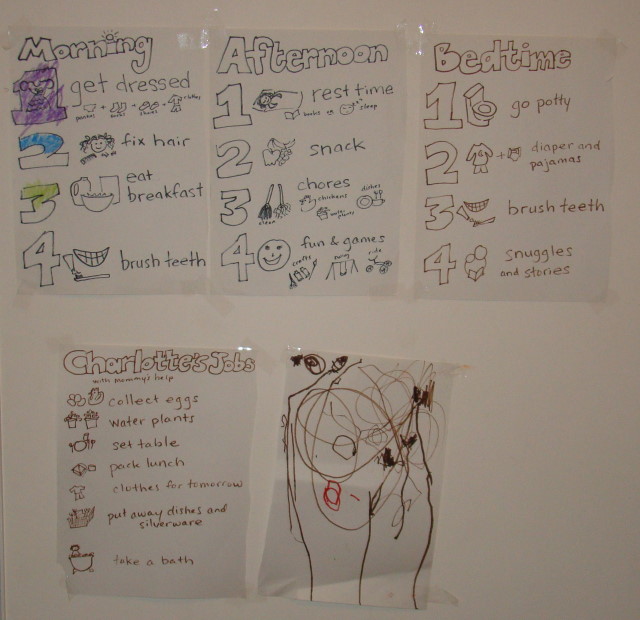 Morning
1 get dressed
clothes
2 fix hair
3 eat
breakfast
4 brush teeth
Afternoon
1 rest time
books or sleep
2 snack
3 chores
chickens dishes
clean water plants
4 fun & games
crafts ride
Bedtime
1 go potty
2 diaper and
pajamas
3 brush teeth
4 snuggles
and stories
Charlotte's Jobs
with mommy's help
collect eggs
water plants
set table
pack lunch
clothes for tomorrow
put away dishes and
silverware
take a bath